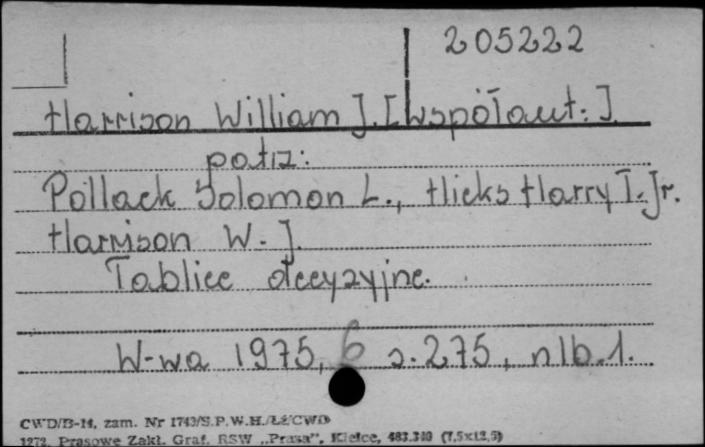 205222
Harrison William J. [współaut.]
patrz:
Pollack Solomon L., Hicks Harry T. Jr.
Harrison W. J.
Tablice decyzyjne.
W-wa 1975, 6 s. 275, nlb. 1.
CWD/B-14, zam. Nr 1743/S.P.W.H./ŁŻ/CWD
1272. Prasowe Zakł. Graf. RSW „Prasa”, Kielce, 483.340 (7,5x12,5)